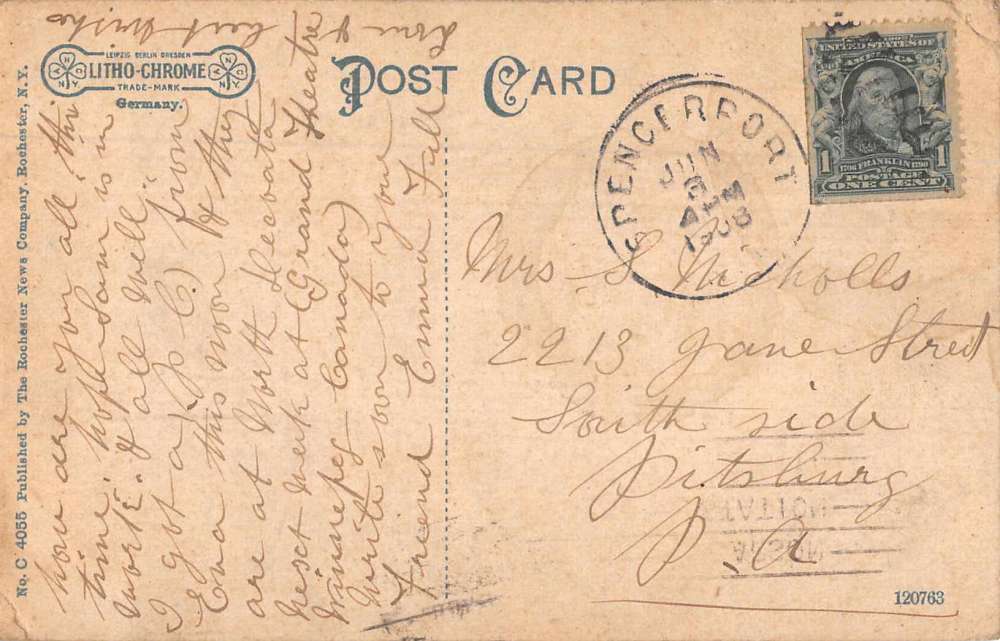 how are you all this
time. hope Sam is in
work. & all well
I got a (P. C.) from
Eva this noon & they
are at North
next week at (Grand Theatre
Winnipeg Canada)
write soon to your
Freend Emma Full
love & best wishes
LEIPZIG BERLIN DRESDEN
LITHO-CHROME
TRADE-MARK
Germany.
POST CARD
No. C 4055 Published by The Rochester News Company, Rochester, N.Y.
SPENCERPORT
JUN
3
4 PM
1908
UNITED STATES OF
AMERICA
1
1
1706 FRANKLIN 1790
POSTAGE
ONE CENT
Mrs S Nicholls
2213 Jane Street
South side
Pitsburg
P. A
STATION
120763